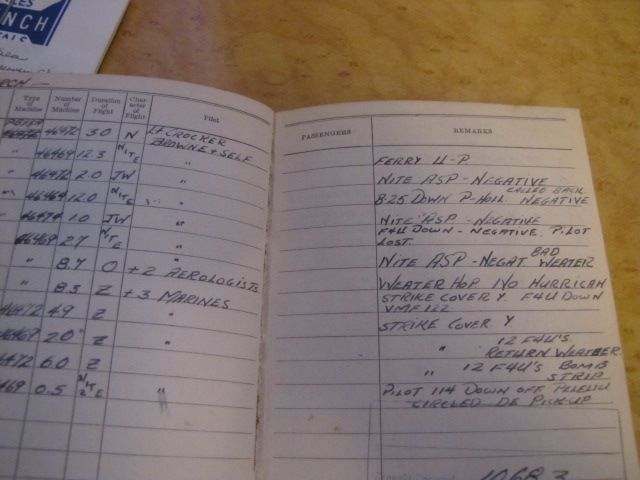 NCH
Type of Machine Number of Machine Duration of Flight Character of Flight Pilot
46972 3.0 N Lt. CROCKER
BROWNE & SELF
" 46469 12.3 N/T/E "
" 46972 2.0 JW "
" 46469 12.0 N/T/E "
" 46974 1.0 JW "
" 46469 2.7 N/T/E "
" 8.7 O + 2 AEROLOGISTS
" 8.3 Z + 3 MARINES
46972 4.9 Z "
46469 2.0 Z
6.0 Z
469 0.5 "
PASSENGERS REMARKS
FERRY U-P
NITE ASP - NEGATIVE
CALLED BACK
B-25 DOWN P-HOLL NEGATIVE
NITE ASP - NEGATIVE
F4U DOWN - NEGATIVE PILOT
LOST
BAD
NITE ASP - NEGAT WEATER
WEATER HOP 140 HURRICAN
STRIKE COVER Y F4U DOWN
VMF 122
STRIKE COVER Y
" 12 F4U'S
RETURN WEATHER
" 12 F4U'S BOMB
STRIP
PILOT 114 DOWN OFF PELELIU
CIRCLED DE PICKUP
1068.3